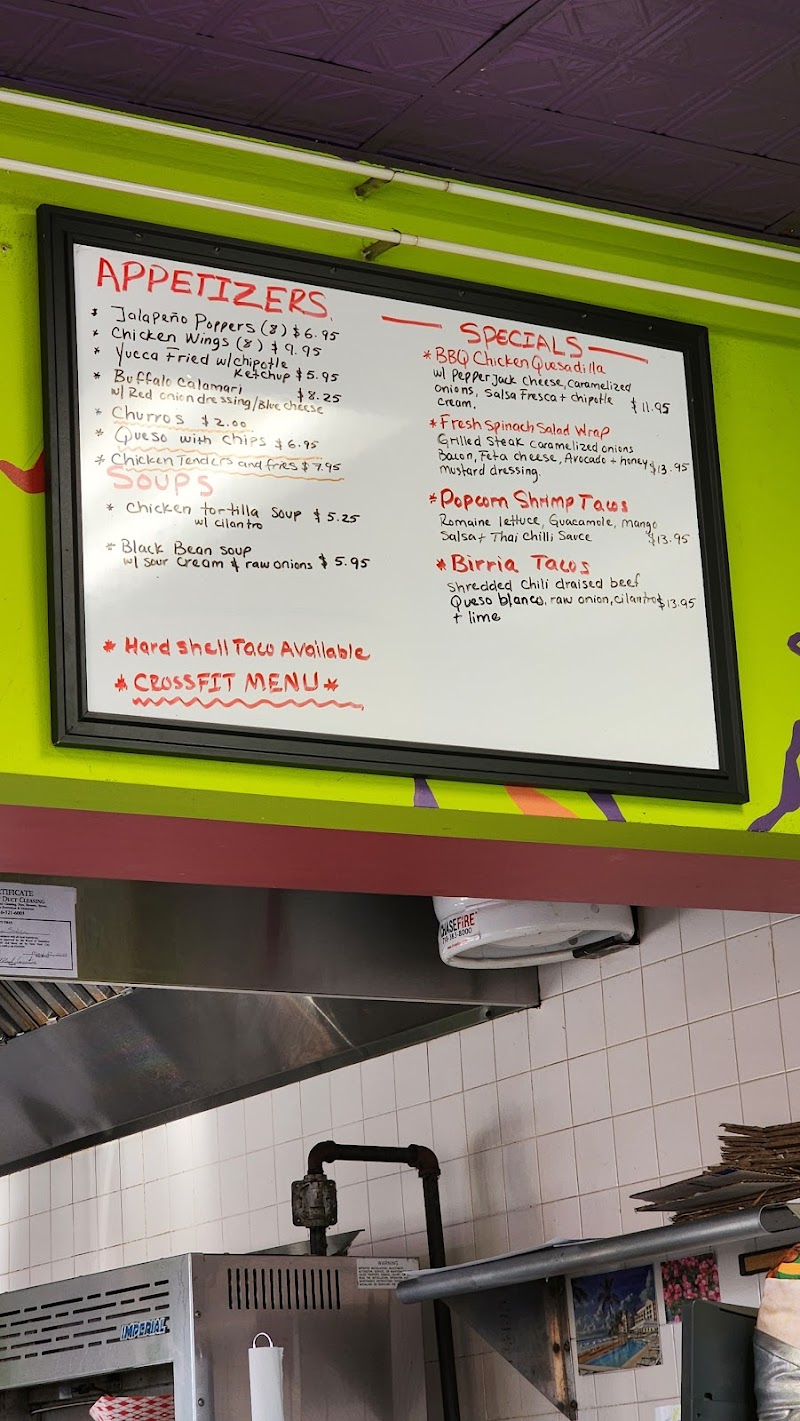 APPETIZERS
* Jalapeño Poppers (8) $6.95
* Chicken Wings (8) $9.95
* Yucca Fried w/chipotle
Ketchup $5.95
* Buffalo Calamari $8.25
w/ Red onion dressing/Blue cheese
* Churros $2.00
* Queso with chips $6.95
* Chicken Tenders and fries $7.95
SOUPS
* Chicken tortilla soup $5.25
w/ cilantro
* Black Bean soup
w/ sour cream & raw onions $5.95
* Hard Shell Taco Available
* CROSSFIT MENU *
SPECIALS
* BBQ Chicken Quesadilla
w/ Pepper Jack cheese, caramelized
onions, Salsa Fresca + chipotle
cream, $11.95
* Fresh Spinach Salad Wrap
Grilled Steak caramelized onions
Bacon, Feta cheese, Avocado + honey $13.95
mustard dressing.
* Popcorn Shrimp Tacos
Romaine lettuce, Guacamole, mango
Salsa + Thai Chilli Sauce $13.95
* Birria Tacos
Shredded Chili draised beef
Queso blanco, raw onion, cilantro $13.95
+ lime
DUCT CLEANING
CHASEFIRE
IMPERIAL
WARNING